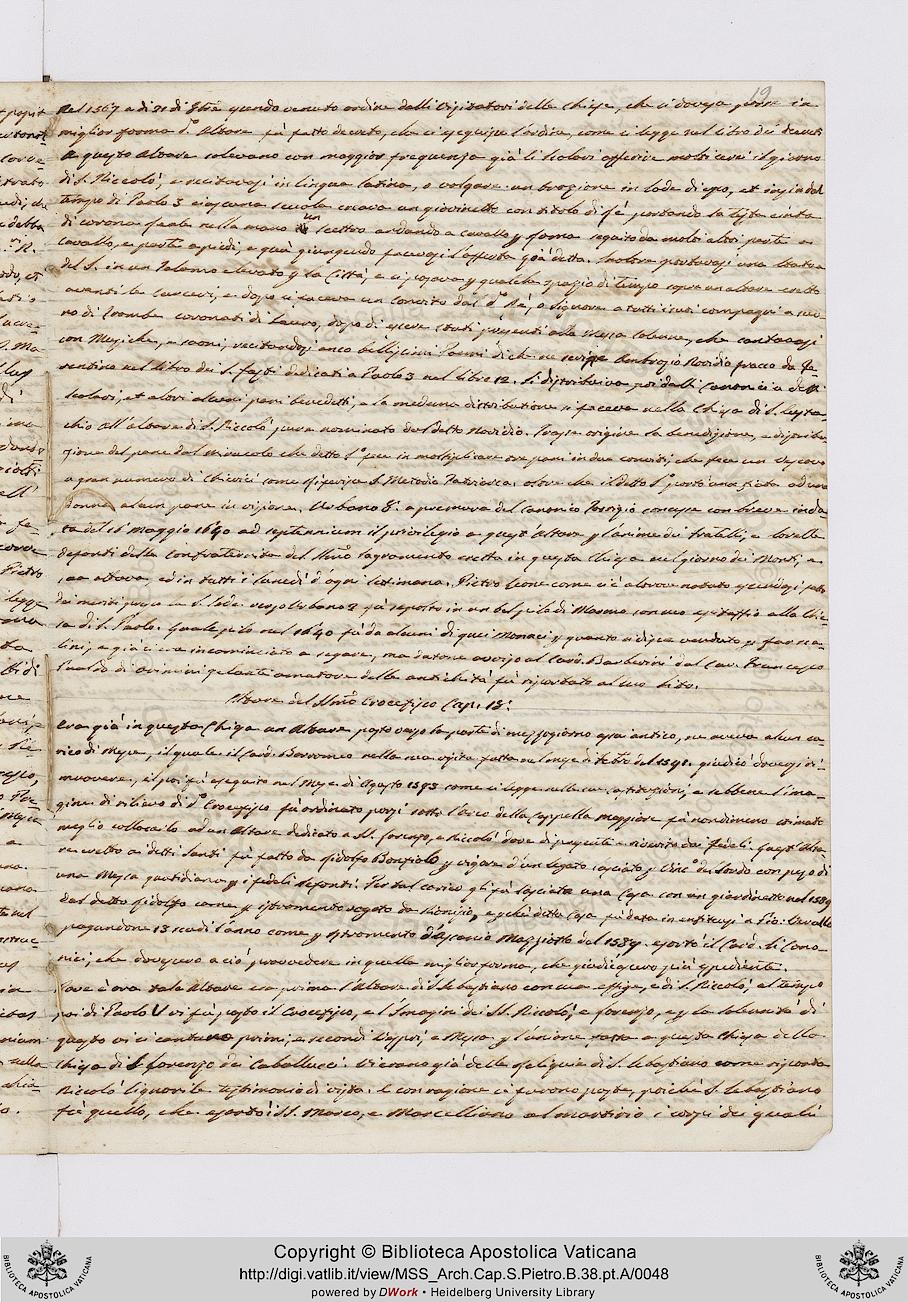 19
Nel 1567 a di 21 di 8bre quando venuto ordine dalli Visitatori delle Chiese, che si dovesse porre in
miglior forma do Altare fu fatto decreto, che si eseguisse l'ordine, come si legge nel libro dei decreti
A questo Altare solevano con maggior frequenza già li scolari offerire molti cerei il giorno
di S. Niccolò, e recitavasi in lingua latina, o volgare un'orazione in lode di esso, et insin dal
tempo di Paolo 3 ciascuna scuola creava un giovinetto con titolo di Rè, portando la testa cinta
di corona reale nella mano un scettro andando a cavallo per Roma seguito da molti altri parte a
cavallo, e parte a piedi, e quà giungendo facevasi l'offerta già detta. Inoltre portavasi una statua
del S. in un Talamo elevato per la Città, e si posava per qualche spazio di tempo sopra un altare eretto
avanti le carceri, e dopo si faceva un convito dal do Rè, o signore a tutti i suoi compagni a suo
no di Trombe coronati di lauro, dopo di essere stati presenti alla Messa solenne, che cantavasi
con Musiche, e suoni, recitandosi anco bellissimi Poemi di che ne scrisse Ambrogio Novidio Fracco da Fe
rentino nel libro dei S. fasti dedicati a Paolo 3 nel libro 12. Si distribuiva poi dalli Canonici a detti
scolari, et altri alcuni pani benedetti, e la medesima distributione si faceva nella Chiesa di S. Eusta
chio all'altare di S. Niccolò pure nominato dal detto Novidio. Trasse origine la benedizione, e distribu
zione del pane dal miracolo che detto So fece in moltiplicare tre pani in due conviti, che fece un Vescovo
a gran numero di Chierici come riferisce S. Metodio Patriarca. oltre che il detto So portò una fiata ad una
donna alcun pane in visione. Urbano 8. a premura del Canonico Torrigio concesse con breve in da
ta del 16 maggio 1640 ad septennium il privilegio a quest'Altare per l'anime dei fratelli, e sorelle
deponti della confraternita del SSmo Sagramento eretta in questa Chiesa nel giorno dei Morti, e
sua ottava, ed in tutti i lunedì d'ogni settimana. Pietro Leone come si è altrove notato
dei meriti presso la S. Sede verso Urbano 2 fu sepolto in un bel pilo di Marmo con suo epitaffio alla Chie
sa di S. Paolo. Quale pilo nel 1640 fù da alcuni di quei Monaci per quanto si disse venduto per far sca
lini, e già si era incominciato a segare, ma datone avviso al Card. Barberini dal Cav. Francesco
Gualdo di Rimini zelante amatore delle antichità fu riportato al suo sito.
Altare del SSmo Crocefisso Cap. 18:
Era già in questa Chiesa un Altare posto verso la parte di mezzogiorno assai antico, ne aveva alcun ca
rico di Messe, il quale il Card. Borromeo nella sua visita fatta nel mese di febro del 1591. giudicò doversi ri
muovere, e poi fù eseguito nel Mese di Agosto 1593 come si legge nelle sue costituzioni, e sebbene l'ima
gine di rilievo di do Crocefisso fu ordinato porsi sotto l'Arco della Cappella maggiore fu nondimeno stimato
meglio collocarlo ad un Altare dedicato a SS. Lorenzo, e Niccolò dove di presente è riverito dai fedeli. Quest'Alta
re eretto ai detti Santi fu fatto da Ridolfo Bonfiolo per vigore d'un legato lasciato per Vinco del fondo con peso di
una Messa quotidiana per i fedeli defonti. Per tal carico gli fù lasciata una Casa con un giardinetto nel 1584
dal detto Ridolfo come per istromento rogato da Dionisio, e perche detta Casa fu data in enfiteusi a Gio: Cavallo
pagandone 13 scudi l'anno come per istromento d'Ascanio Mazziotto del 1589. esortò il Card. li Cano
nici, che dovessero a ciò provvedere in quella miglior forma, che giudicassero più espediente.
Dove è ora tale Altare era prima l'Altare di S. Sebastiano con sua effige, e di S. Niccolò, al tempo
poi di Paolo V vi fù posto il Crocefisso, e l'Imagini dei SS. Niccolò, e Lorenzo, e per la solennità di
questo vi si cantano primi, e secondi Vespri, e Messa per l'unione fatta a questa Chiesa della
Chiesa di S. Lorenzo dei Caballucci. Vi erano già delle Reliquie di S. Sebastiano come riporta
Niccolò Signorile testimonio di vista. E con ragione ci furono poste, poichè S. Sebastiano
fu quello, che esortò i SS. Marco, e Marcelliano al martirio i corpi dei quali
Copyright © Biblioteca Apostolica Vaticana
http://digi.vatlib.it/view/MSS_Arch.Cap.S.Pietro.B.38.pt.A/0048
powered by DWork • Heidelberg University Library
BIBLIOTECA APOSTOLICA VATICANA
BIBLIOTECA APOSTOLICA VATICANA